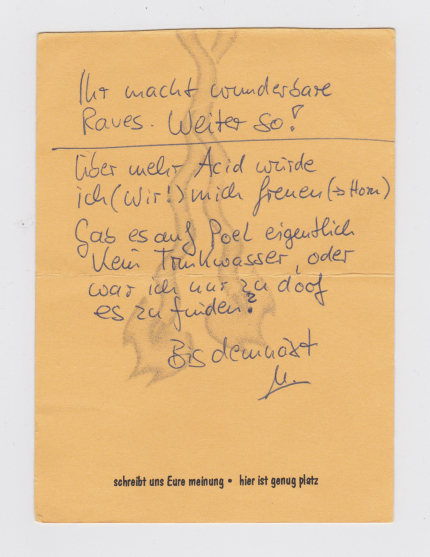 Ihr macht wunderbare
Raves. Weiter so!
Über mehr Acid würde
ich (wir!) mich freuen (→ Horn)
Gab es auf Poel eigentlich
kein Trinkwasser, oder
war ich nur zu doof
es zu finden?
Bis demnäxt
M.
schreibt uns Eure meinung • hier ist genug platz